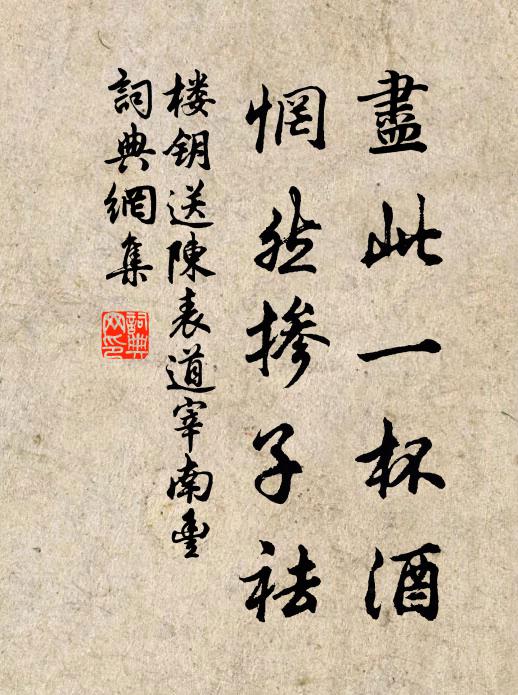 盡此一杯酒
惘然掺子袪
楼钥送陳表道宰南豊
詞典網集
詞典
网印